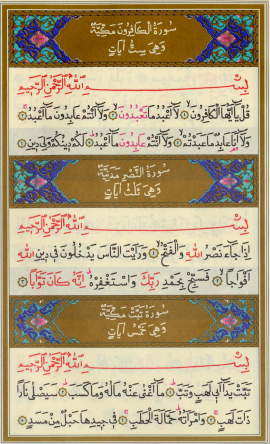 سورة الكافرون مكية
وهي ست آيات
بسم الله الرحمن الرحيم
قل يا أيها الكافرون ۝ لا أعبد ما تعبدون ۝ ولا أنتم عابدون ما أعبد ۝
ولا أنا عابد ما عبدتم ۝ ولا أنتم عابدون ما أعبد ۝ لكم دينكم ولي دين ۝
سورة النصر مدنية
وهي ثلث آيات
بسم الله الرحمن الرحيم
إذا جاء نصر الله والفتح ۝ ورأيت الناس يدخلون في دين الله
أفواجا ۝ فسبح بحمد ربك واستغفره إنه كان توابا ۝
سورة تبت مكية
وهي خمس آيات
بسم الله الرحمن الرحيم
تبت يدا أبي لهب وتب ۝ ما أغنى عنه ماله وما كسب ۝ سيصلى نارا
ذات لهب ۝ وامرأته حمالة الحطب ۝ في جيدها حبل من مسد ۝